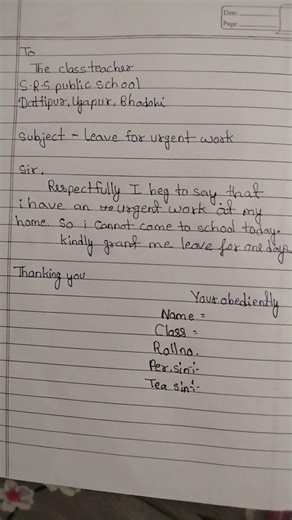 Date:
Page:
To
The class teacher
S.R.S public school
Dattipur, Ugapur, Bhadohi
subject - Leave for urgent work
sir.
Respectfully I beg to say that
i have an urgent work at my
home. So i cannot come to school today.
kindly grant me leave for one days
Thanking you
Your obediently
Name =
Class =
Rollno.
Per. sin :-
Tea sin :-